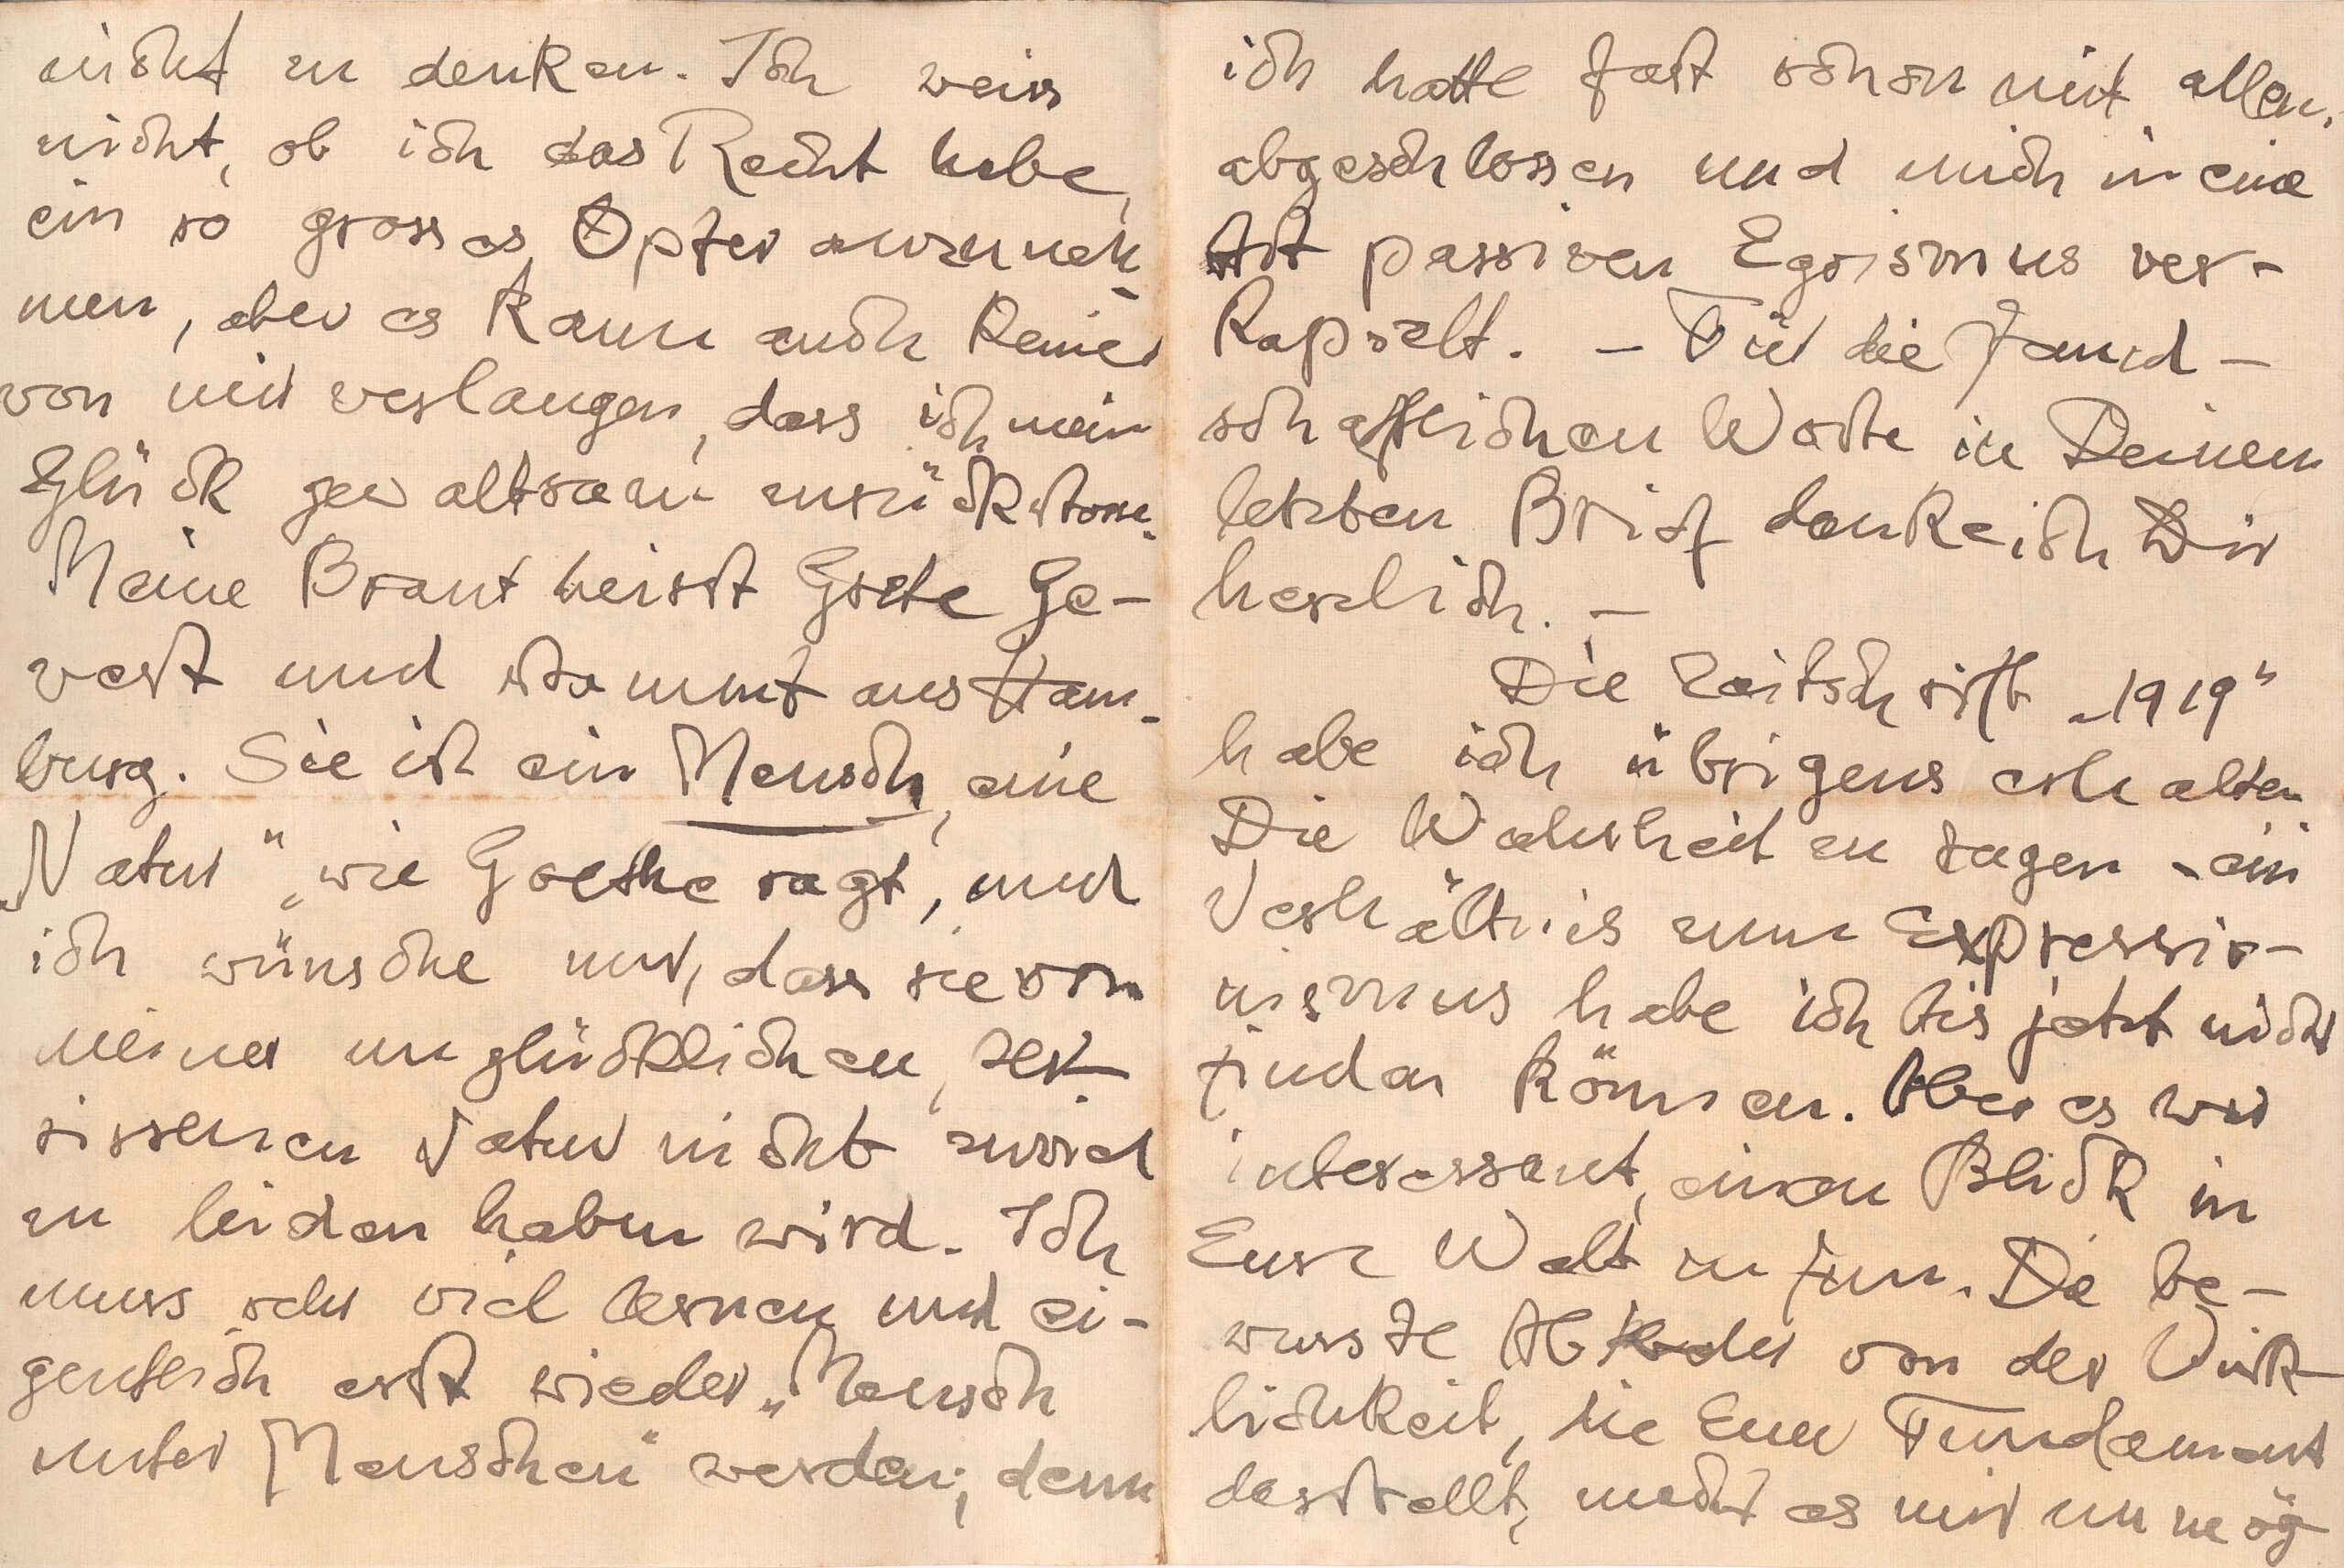 nicht zu denken. Ich weiss
nicht, ob ich das Recht habe,
ein so grosses Opfer anzuneh-
men, aber es kann auch keiner
von mir verlangen, dass ich mein
Glück gewaltsam zurückstosse.
Meine Braut heisst Grete Ge-
vert und stammt aus Ham-
burg. Sie ist ein Mensch, eine
„Natur“, wie Goethe sagt, und
ich wünsche nur, dass sie von
meiner unglücklichen, zer-
rissenen Natur nicht zuviel
zu leiden haben wird. Ich
muss sehr viel lernen und ei-
gentlich erst wieder „Mensch
unter Menschen“ werden; denn
ich hatte fast schon mit allem
abgeschlossen und mich in eine
Art passiven Egoismus ver-
kapselt. – Für die freund-
schaftlichen Worte in Deinem
letzten Brief danke ich Dir
herzlich. –
Die Zeitschrift „1919“
habe ich übrigens erhalten
Die Wahrheit zu sagen – ein
Verhältnis zum Expressio-
nismus habe ich bis jetzt nicht
finden können. Aber es war
interessant, einen Blick in
Eure Welt zu tun. Die be-
wusste von der Wirk-
lichkeit, die Euer Fundament
darstellt, macht es mir unmög